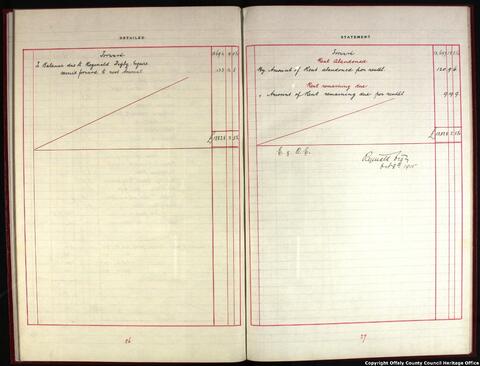 DETAILED
Forward
To Balance due to Reginald Digby Esquire
carried forward to next Account
£
26
STATEMENT
Forward
Rent Abandoned
By Amount of Rent abandoned per rental
120 9 6
Rent remaining due
" Amount of Rent remaining due per rental
£
E. & O. E.
Reginald Digby
1915
27
Copyright Offaly County Council Heritage Office